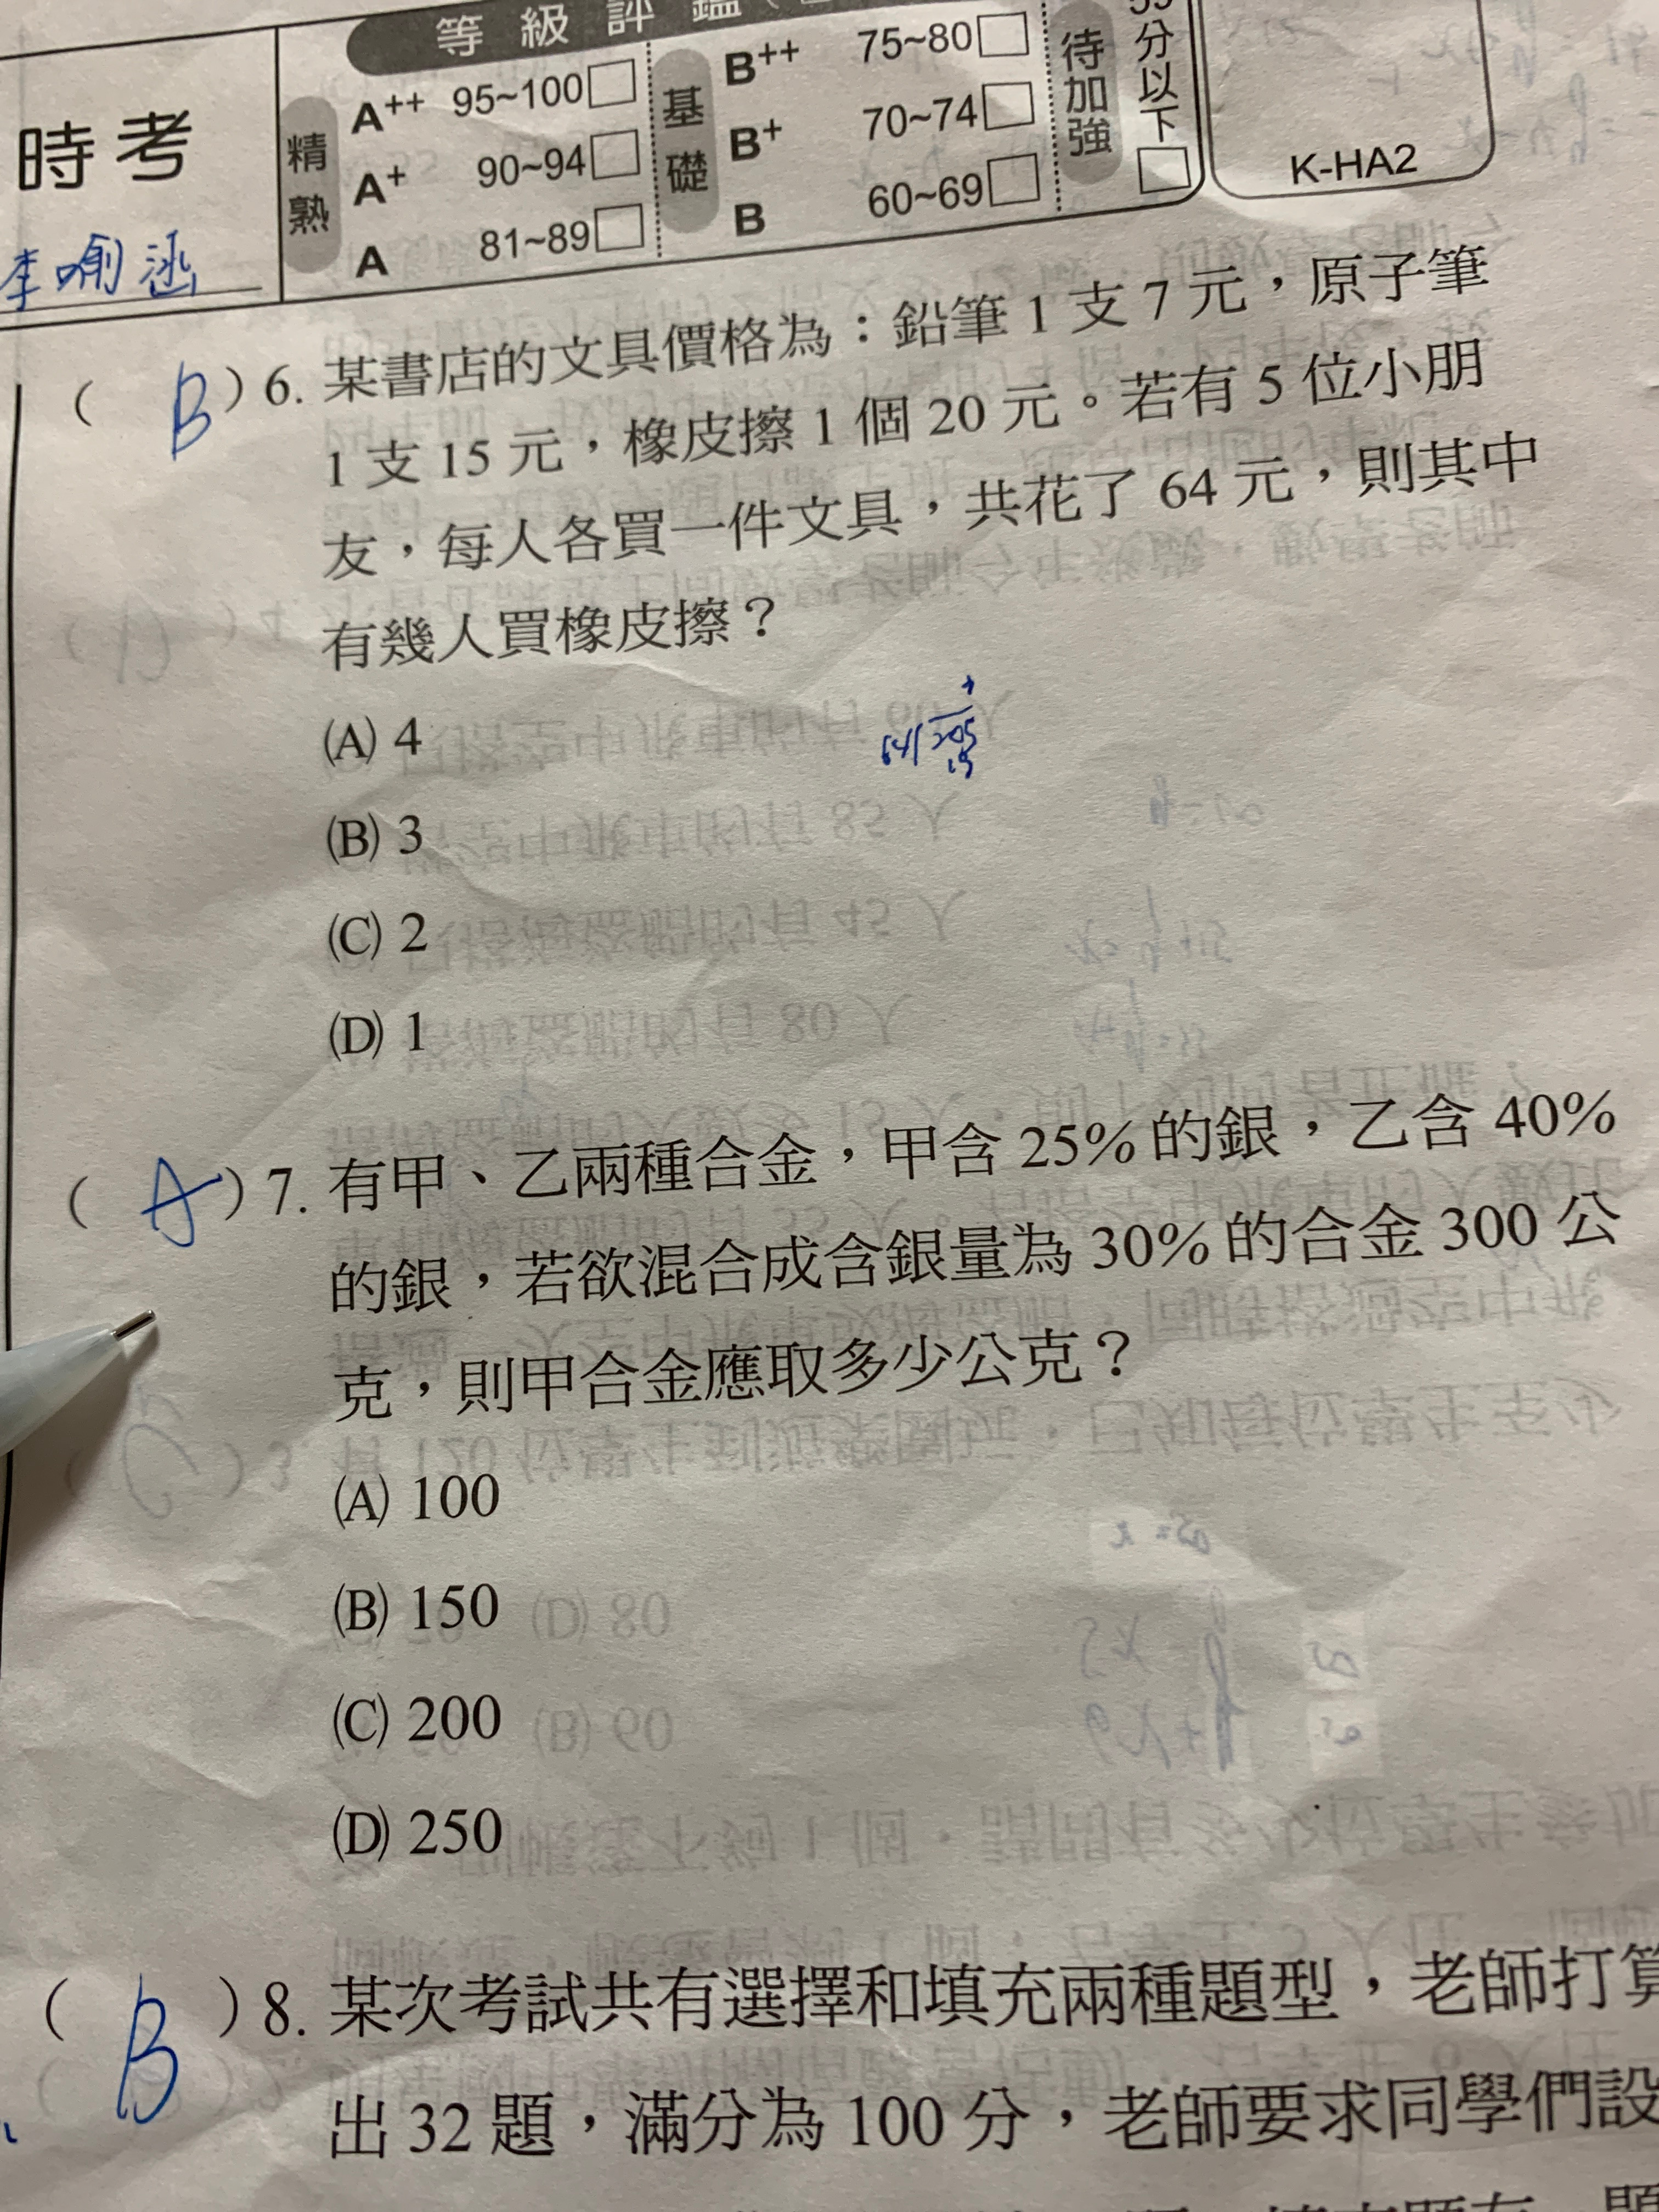 等級評鑑
時考
精熟
A++ 95~100□
A+ 90~94□
A 81~89□
基礎
B++ 75~80□
B+ 70~74□
B 60~69□
待加強
分以下□
K-HA2
( B )6. 某書店的文具價格為：鉛筆1支7元，原子筆
1支15元，橡皮擦1個20元。若有5位小朋
友，每人各買一件文具，共花了64元，則其中
有幾人買橡皮擦？
(A) 4
(B) 3
(C) 2
(D) 1
( A )7. 有甲、乙兩種合金，甲含25%的銀，乙含40%
的銀，若欲混合成含銀量為30%的合金300公
克，則甲合金應取多少公克？
(A) 100
(B) 150
(C) 200
(D) 250
( B )8. 某次考試共有選擇和填充兩種題型，老師打算
出32題，滿分為100分，老師要求同學們設